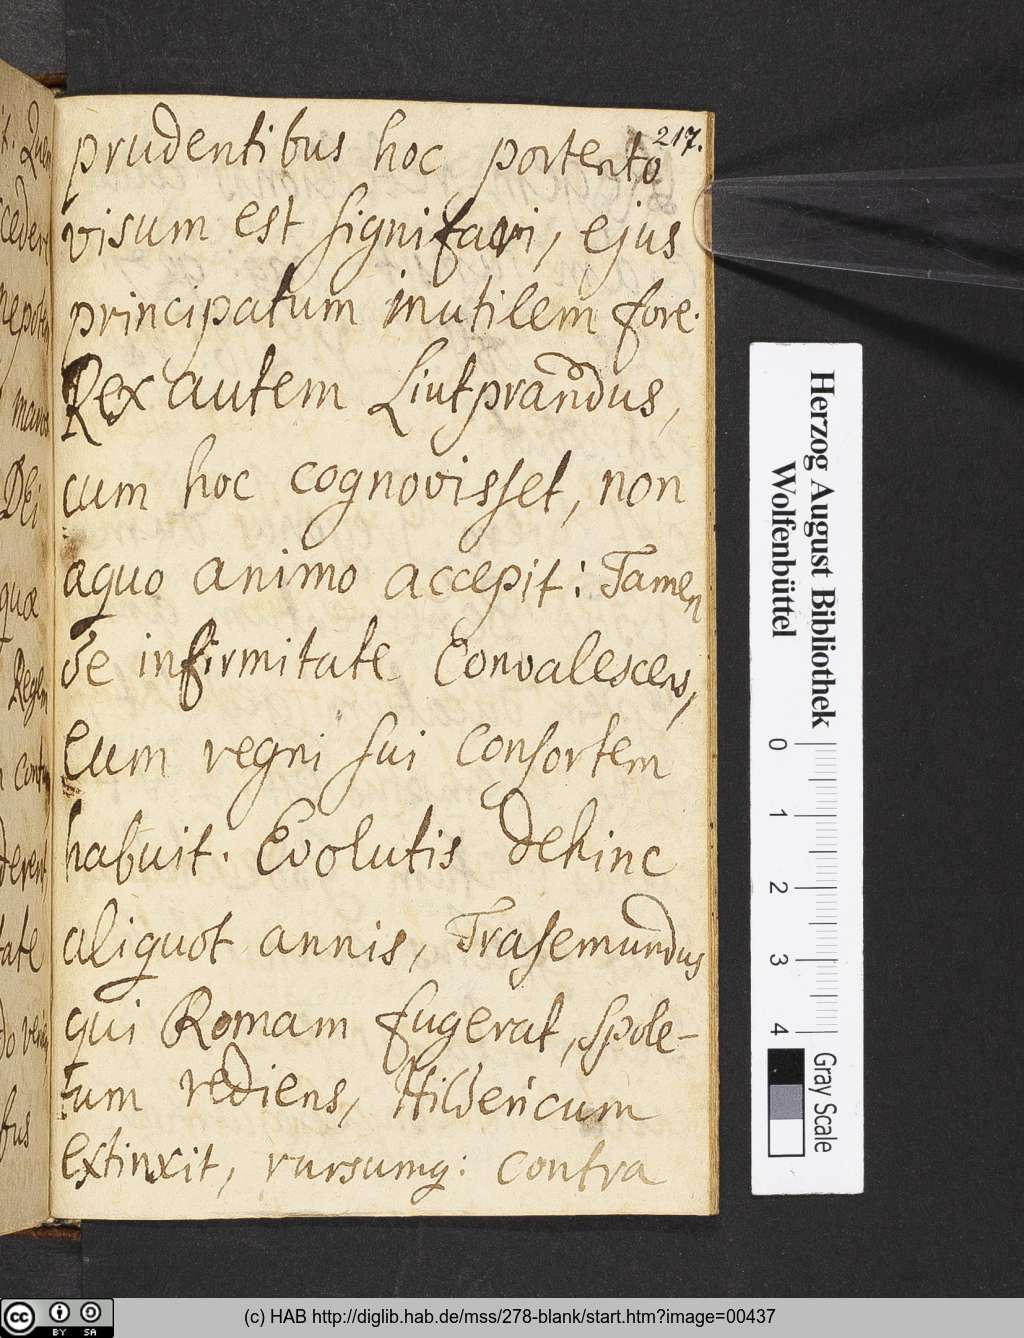 217.
prudentibus hoc portento
visum est significari, ejus
principatum inutilem fore.
Rex autem Liutprandus,
cum hoc cognovisset, non
aquo animo accepit: Tamen
de infirmitate convalescens,
eum regni sui consortem
habuit. Evolutis dehinc
aliquot annis, Trasemundus
qui Romam fugerat, Spole-
tum rediens, Hildericum
extinxit, rursumq: contra
Herzog August Bibliothek
Wolfenbüttel
0 1 2 3 4
Gray Scale
(c) HAB http://diglib.hab.de/mss/278-blank/start.htm?image=00437
cc BY SA